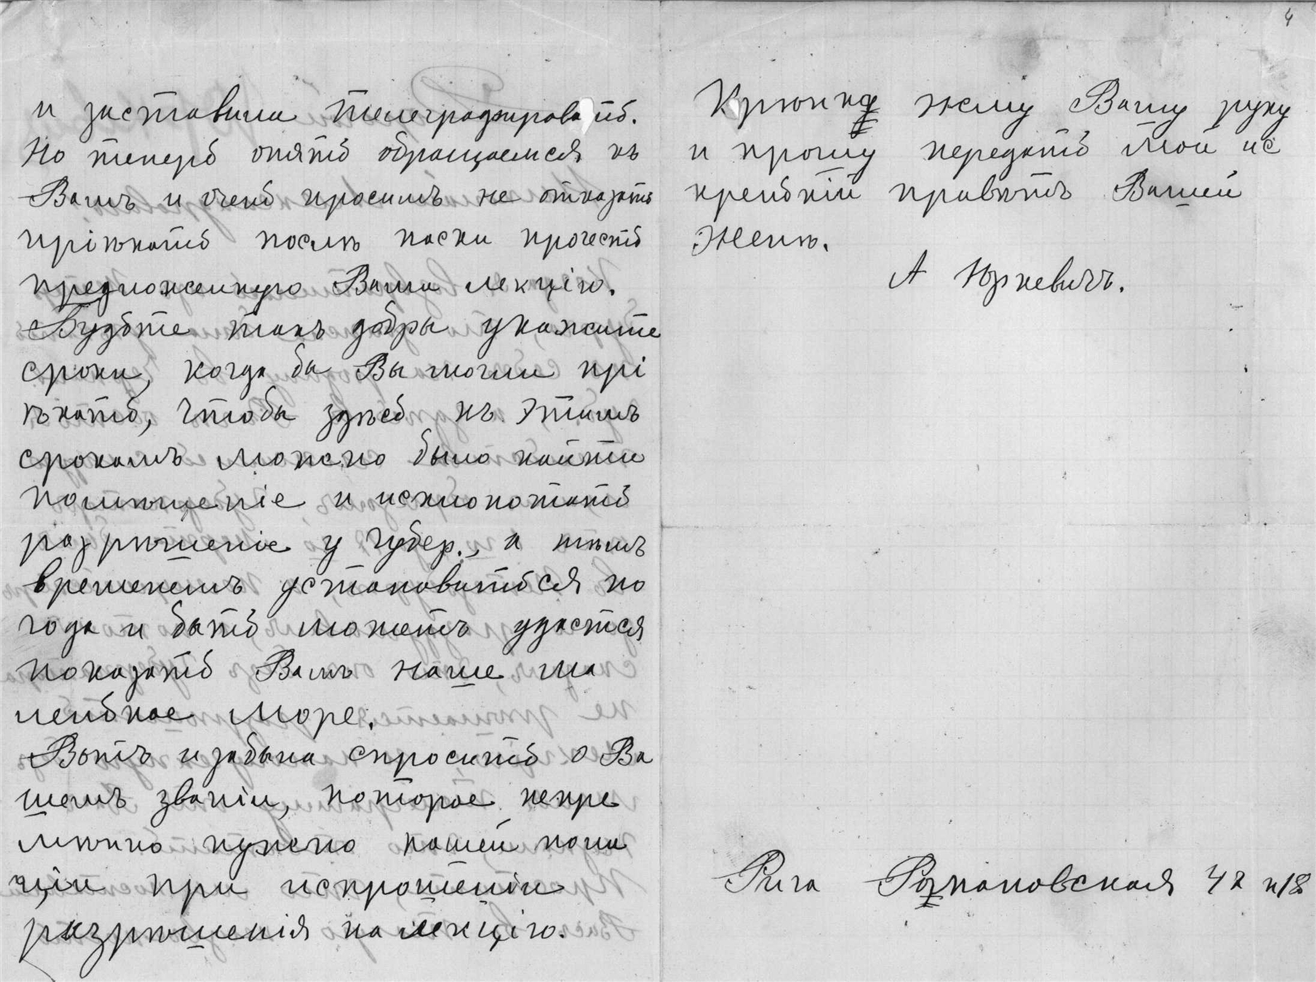 4
и заставила телеграфировать.
Но теперь опять обращаемся къ
Вамъ и очень просимъ не отказать
пріѣхать послѣ пасхи прочесть
предложенную Вами лекцію.
Будьте такъ добры укажите
сроки, когда бы Вы могли прі
ѣхать, чтобы здѣсь къ этимъ
срокамъ можно было найти
помѣщеніе и исхлопотать
разрѣшеніе у губер., а тѣмъ
временемъ установиться по
года и быть можетъ удастся
показать Вамъ наше ма
ленькое море.
Вотъ и забыла спросить о Ва
шемъ званіи, которое непре
мѣнно нужно нашей поли
ціи при испрошеніи
разрѣшенія на лекцію.
Крѣпко жму Вашу руку
и прошу передать мой ис
кренній привѣтъ Вашей
женѣ.
А Юркевичъ.
Рига Романовская 42 к18